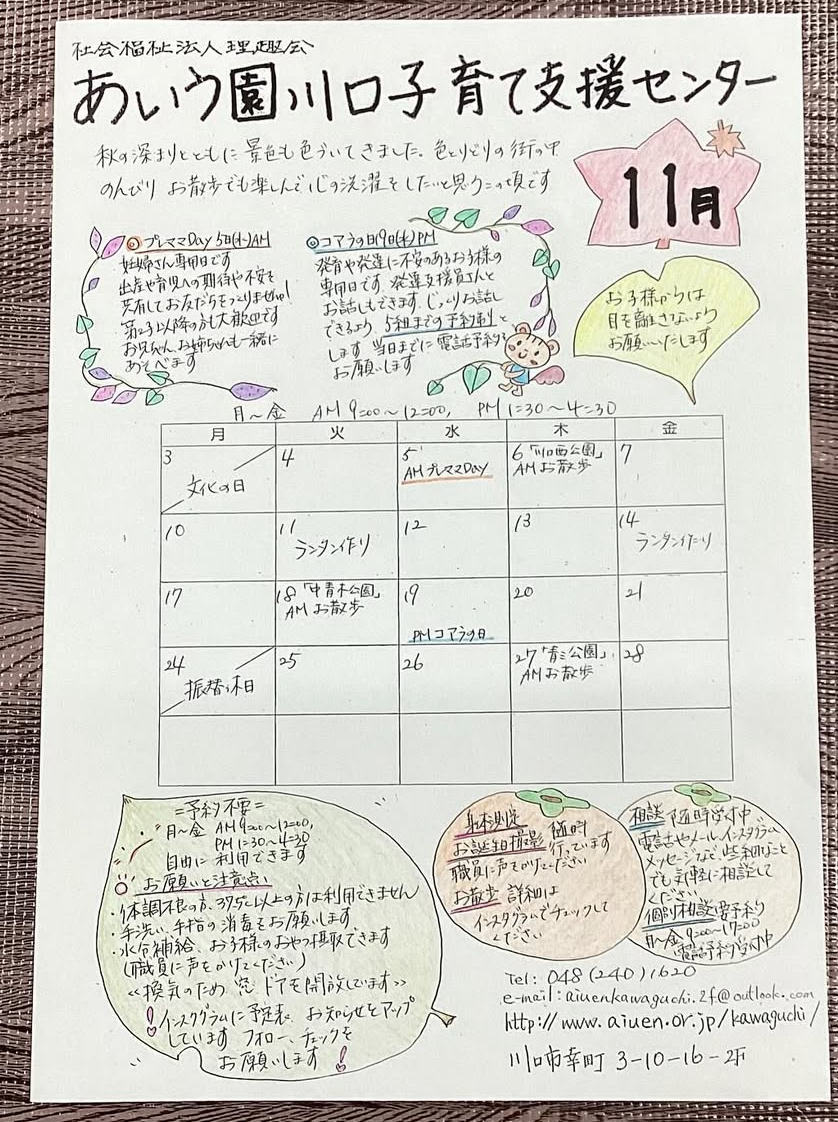 社会福祉法人理趣会
あいう園川口子育て支援センター
秋の深まりとともに景色も色づいてきました。色とりどりの街の中
のんびり お散歩でも楽しんで心の洗濯をしたいと思うこの頃です
11月
◎プレママDay 5日(水)AM
妊婦さん専用日です
出産や育児への期待や不安を
共有してお友だちをつくりませんか!
第2子以降の方も大歓迎です
お兄ちゃん、お姉ちゃんも一緒に
あそべます
◎コアラの日19日(水)PM
発育や発達に不安のあるお子様の
専用日です。発達支援員さんと
お話しもできます。じっくりお話し
できるよう、5組までの予約制と
します 当日までに電話予約を
お願いします
お子様からは
目を離さないよう
お願いいたします
月〜金 AM 9:00〜12:00, PM 1:30〜4:30
月 火 水 木 金
3 文化の日
4
5 AM プレママDay
6 「川口西公園」
AM お散歩
7
10
11 ランタン作り
12
13
14 ランタン作り
17
18 「中青木公園」
AM お散歩
19 PM コアラの日
20
21
24 振替休日
25
26
27 「青三公園」
AM お散歩
28
=予約不要=
月〜金 AM 9:00〜12:00,
PM 1:30〜4:30
自由に利用できます
お願いと注意点
・体調不良の方、37.5℃以上の方は利用できません
・手洗い、手指の消毒をお願いします
・水分補給、お子様のおやつ摂取できます
(職員に声をかけてください)
≪換気のため 窓、ドアを開放しています≫
!インスタグラムに予定表、お知らせをアップ
しています フォロー、チェックを
お願いします!
身体測定
お誕生日撮影 随時
行っています
職員に声をかけてください
お散歩 詳細は
インスタグラムでチェックして
ください
相談 随時受付中
電話やメール、インスタグラム
メッセージなど、些細なこと
でも気軽に相談して
ください
個別相談要予約
月〜金 9:00〜17:00
電話予約受付中
Tel: 048(240)1620
e-mail: aiuenkawaguchi.2f@outlook.com
http://www.aiuen.or.jp/kawaguchi/
川口市幸町 3-10-16-2F